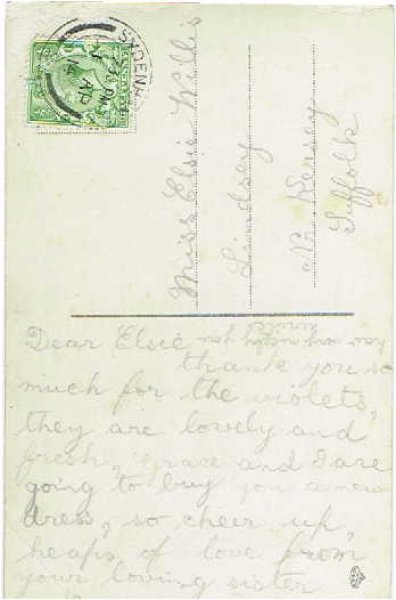 SYDENHAM
30 PM
AP
14
Miss Elsie Willis
Lindsey
Nr Kersey
Suffolk
Dear Elsie
thank you so
much for the violets,
they are lovely and
fresh, Grace and I are
going to buy you a new
dress, so cheer up,
heaps of love from
your loving sister